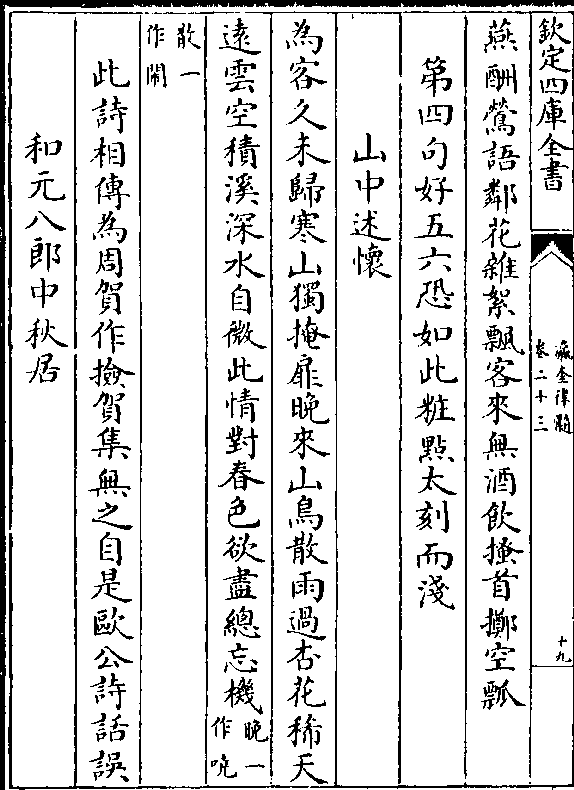 欽定四庫全書
瀛奎律髓
卷二十三
十九
燕酬鶯語鄰花雜絮飄客來無酒飲搔首擲空瓢
第四句好五六恐如此粧點太刻而淺
山中述懷
為客久未歸寒山獨掩扉晚來山鳥散雨過杏花稀天
遠雲空積溪深水自微此情對春色欲盡總忘機
晚一
作吮
散一
作閙
此詩相傳為周賀作撿賀集無之自是歐公詩話誤
和元八郎中秋居